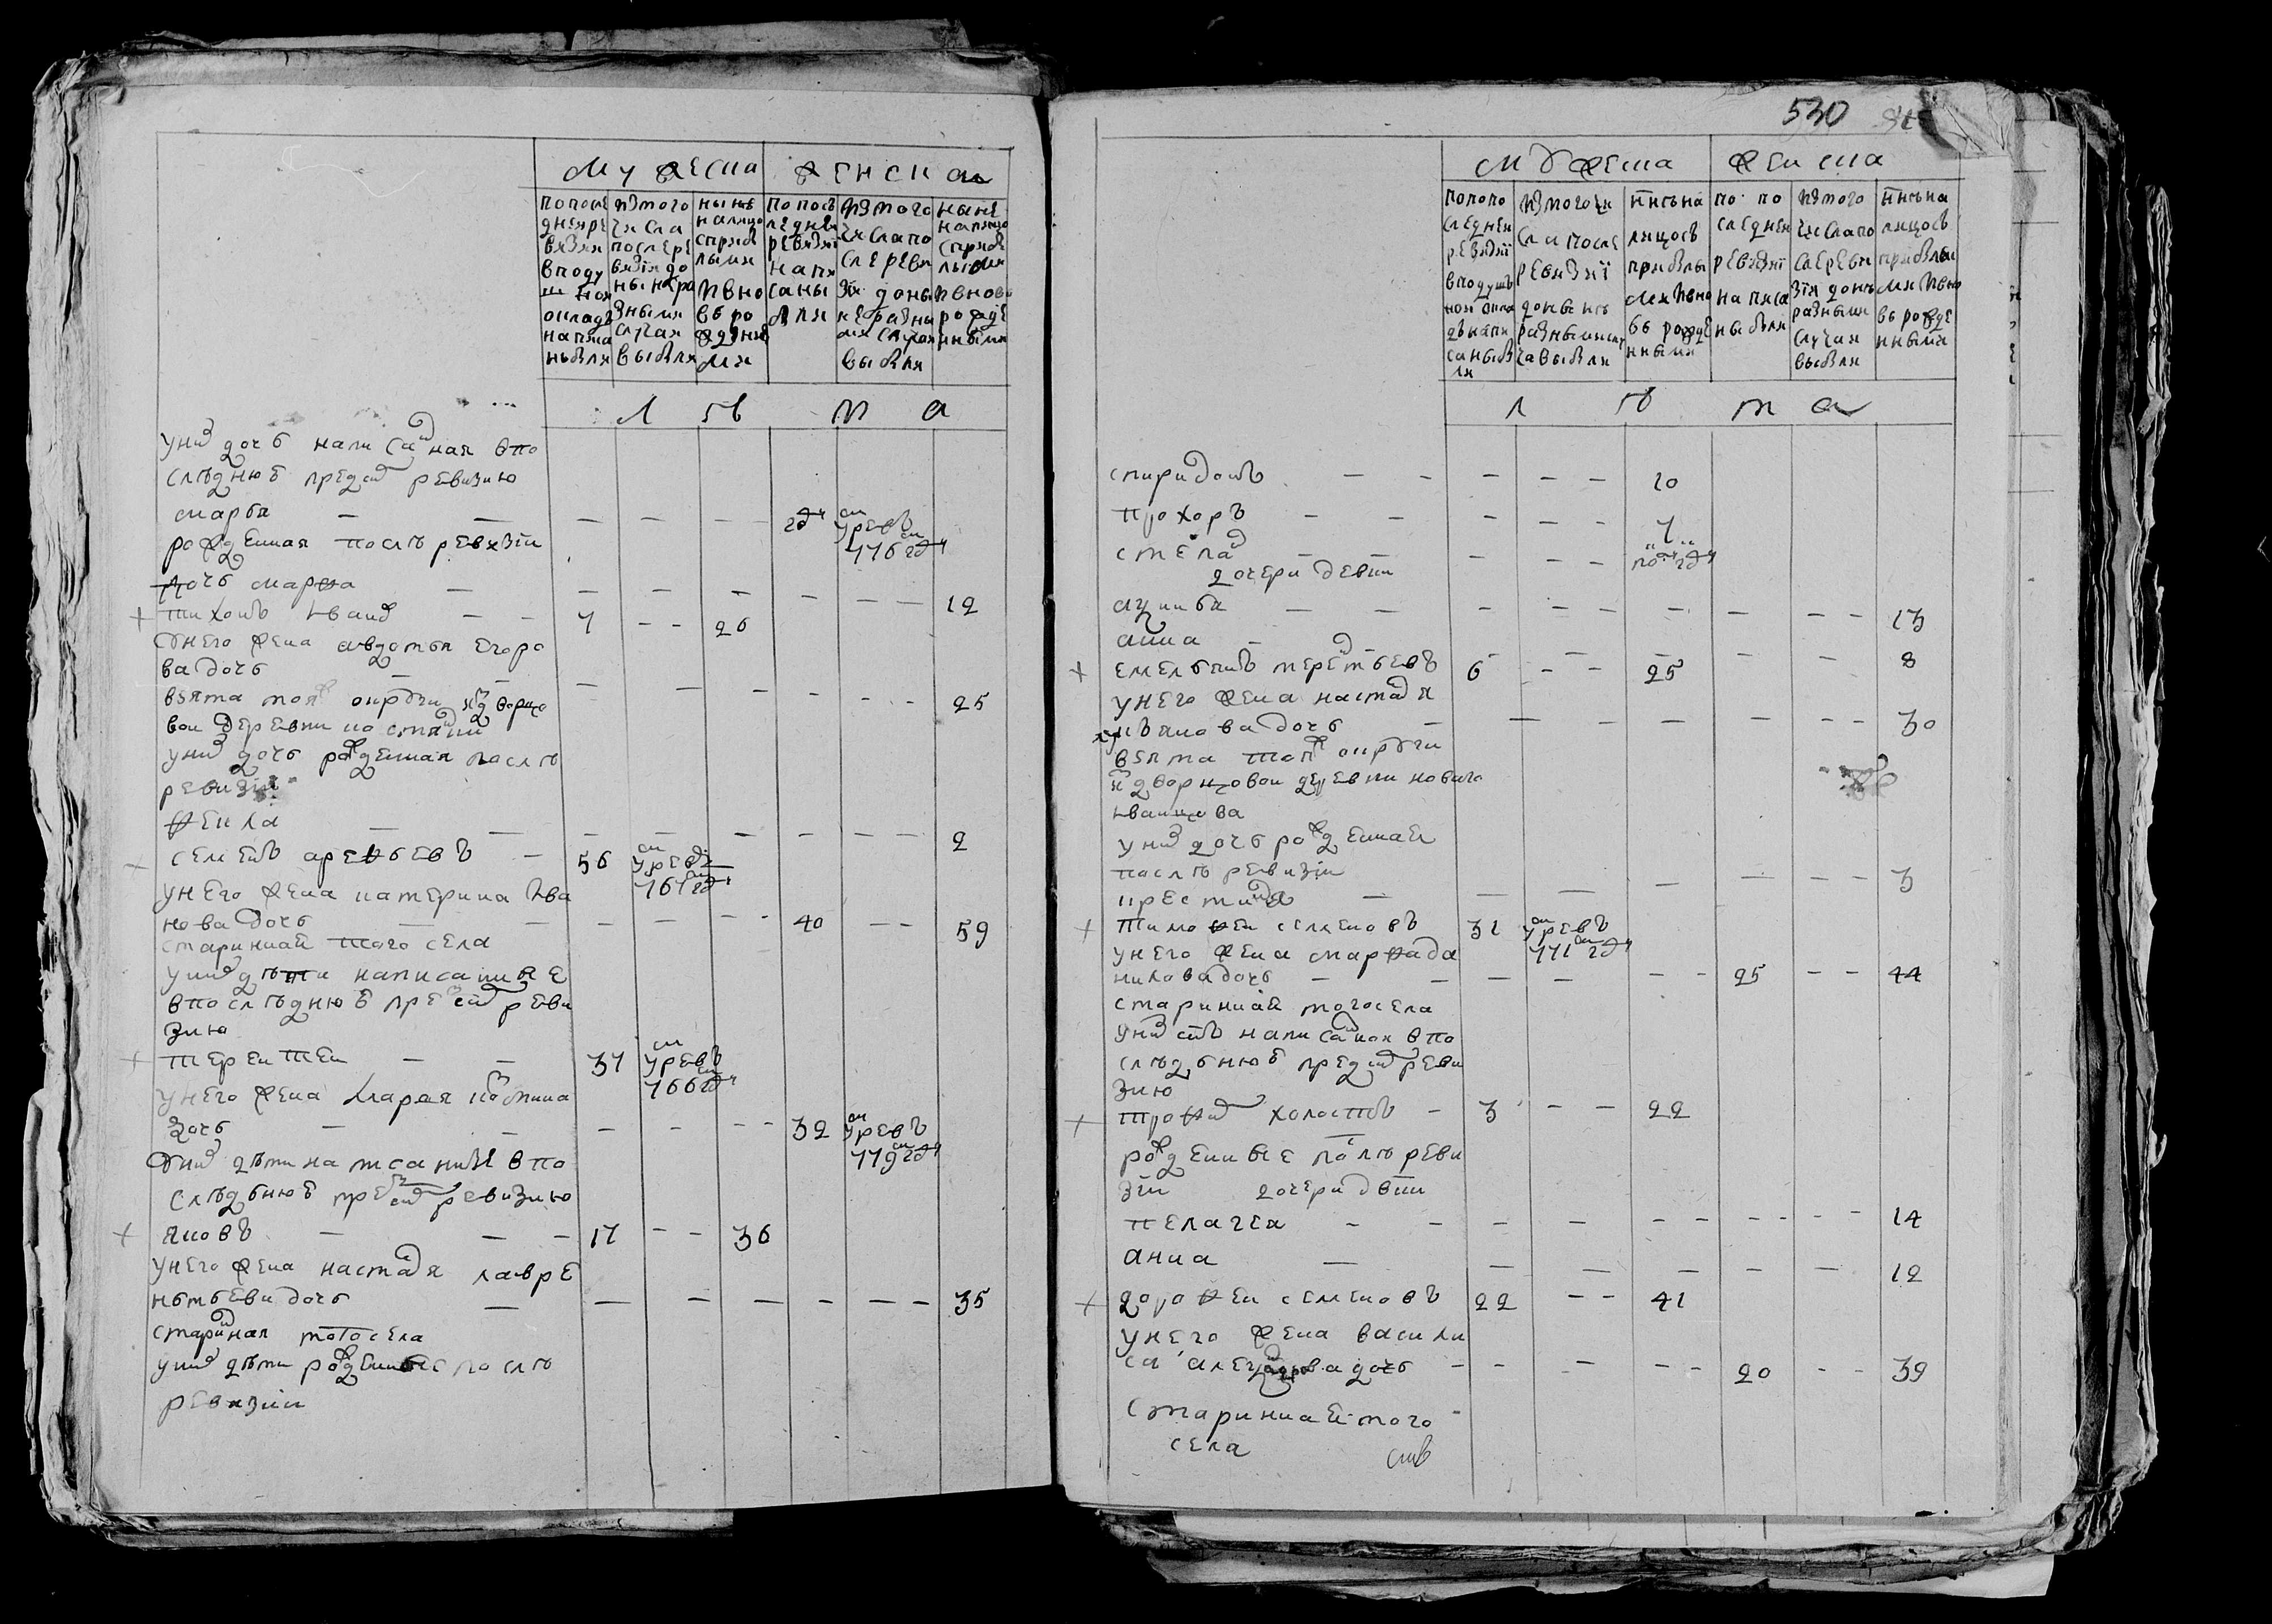 мужеска женска
попосле днея ре вязии в подушном окладе написаны были
изтого числа после ревязии до ныне разными случаи выбыли
ныне налицо с прибылыми и вновь рожденными
по последней ревязии написаны были
изтого числа после ревизии доныне разными случаи выбыли
ныне налицо с прибылыми и вновь рожденными
лѣта
у них дочь написанная в по
слѣднюю пред сим ревизию
марья — — — — — — 2д
рожденная послѣ ревизіи
дочь марфа — — — — — — — 12
+ тихонъ Иванов — — 7 — — 26
у него жена авдотья егоро
ва дочь — — — — — — — — 25
взята той округи из дворцо
вои деревни
у них дочь рожденная послѣ
ревизіи
фекла — — — — — — — — 2
семенъ арефьевъ — 56 умре въ 767м годѣ
у него жена катерина Ива
нова дочь — — — — — — 40 — — 59
стариннаа того села
у них дѣти написанные
в послѣднюю пред сим реви
зию
+ терентеи — — 37 умре въ 766м годѣ
у него жена марья
дочь — — — — — — 32 умре въ 779м годѣ
у них дѣти написанные в по
слѣднюю пред сим ревизию
+ яковъ — — — 17 — — 36
у него жена настася лавре
нтьева дочь — — — — — — — 35
старинная того села
у них дѣти рожденные послѣ
ревизіи
530
мужеска женска
по последнеи ревизіи в подушном окладе написаны были
изтого числа после ревизіи доныне разными случаи выбыли
ныне на лицо с прибылыми и вновь рожденными
по последнеи ревизіи написаны были
изтого числа после ревизіи доныне разными случаи выбыли
ныне на лицо с прибылыми и вновь рожденными
лѣта
спиридонъ — — — — — 10
прохоръ — — — — — 7
степан — — — — — полгода
дочери девки
акулина — — — — — — — — — 13
анна — — — — — 8
+ емельянъ терентьевъ 6 — — 25
у него жена настася
лукьянова дочь — — — — — — — 30
взята тои округи
из дворцовои деревни новаго
иванцова
у них дочь рожденнаа
послѣ ревизіи — — — — — — 3
крестина —
+ тимофеи семеновъ 31 умре въ 771м годѣ
у него жена марфа да
нилова дочь — — — — — — 25 — — 44
стариннаа того села
у них сынъ написанои в по
слѣднюю пред сим реви
зию
+ трофим холостъ — 3 — — 22
рожденные послѣ реви
зіи дочери двки
пелагея — — — — — — — — — — 14
анна — — — — — — 12
+ дорофеи семеновъ 22 — — 41
у него жена васили
са александрова дочь — — — — — 20 — — 39
стариннаа того
села